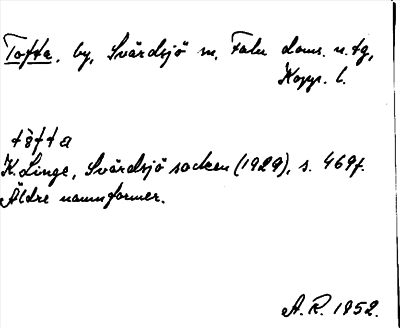 Tofta, by, Svärdsjö sn, Falu doms. n. tg,
Kopp. l.
tòfta
K. Linge, Svärdsjö socken (1929), s. 469f.
Äldre namnformer.
A. R. 1952.